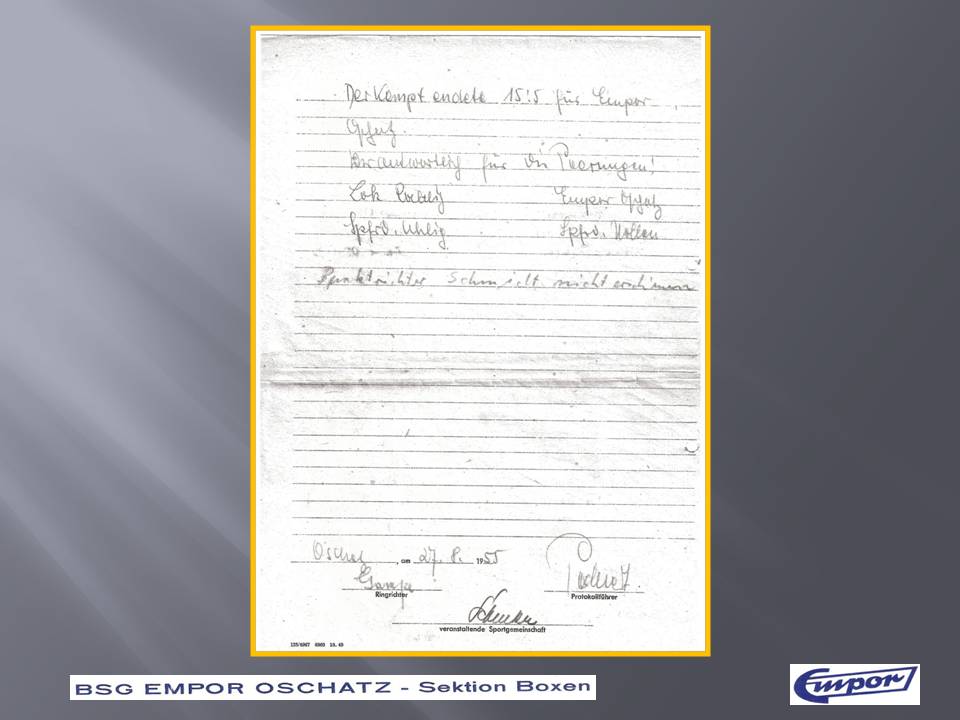 Der Kampf endete 15:5 für Empor
Oschatz.
Verantwortlich für die Paarungen!
Lok Empor Oschatz
Spfrd. Uhlig Spfrd.
Punktrichter Schmidt nicht erschienen
Oschatz, am 27. 8. 1955
Ringrichter Protokollführer
veranstaltende Sportgemeinschaft
BSG EMPOR OSCHATZ - Sektion Boxen
Empor